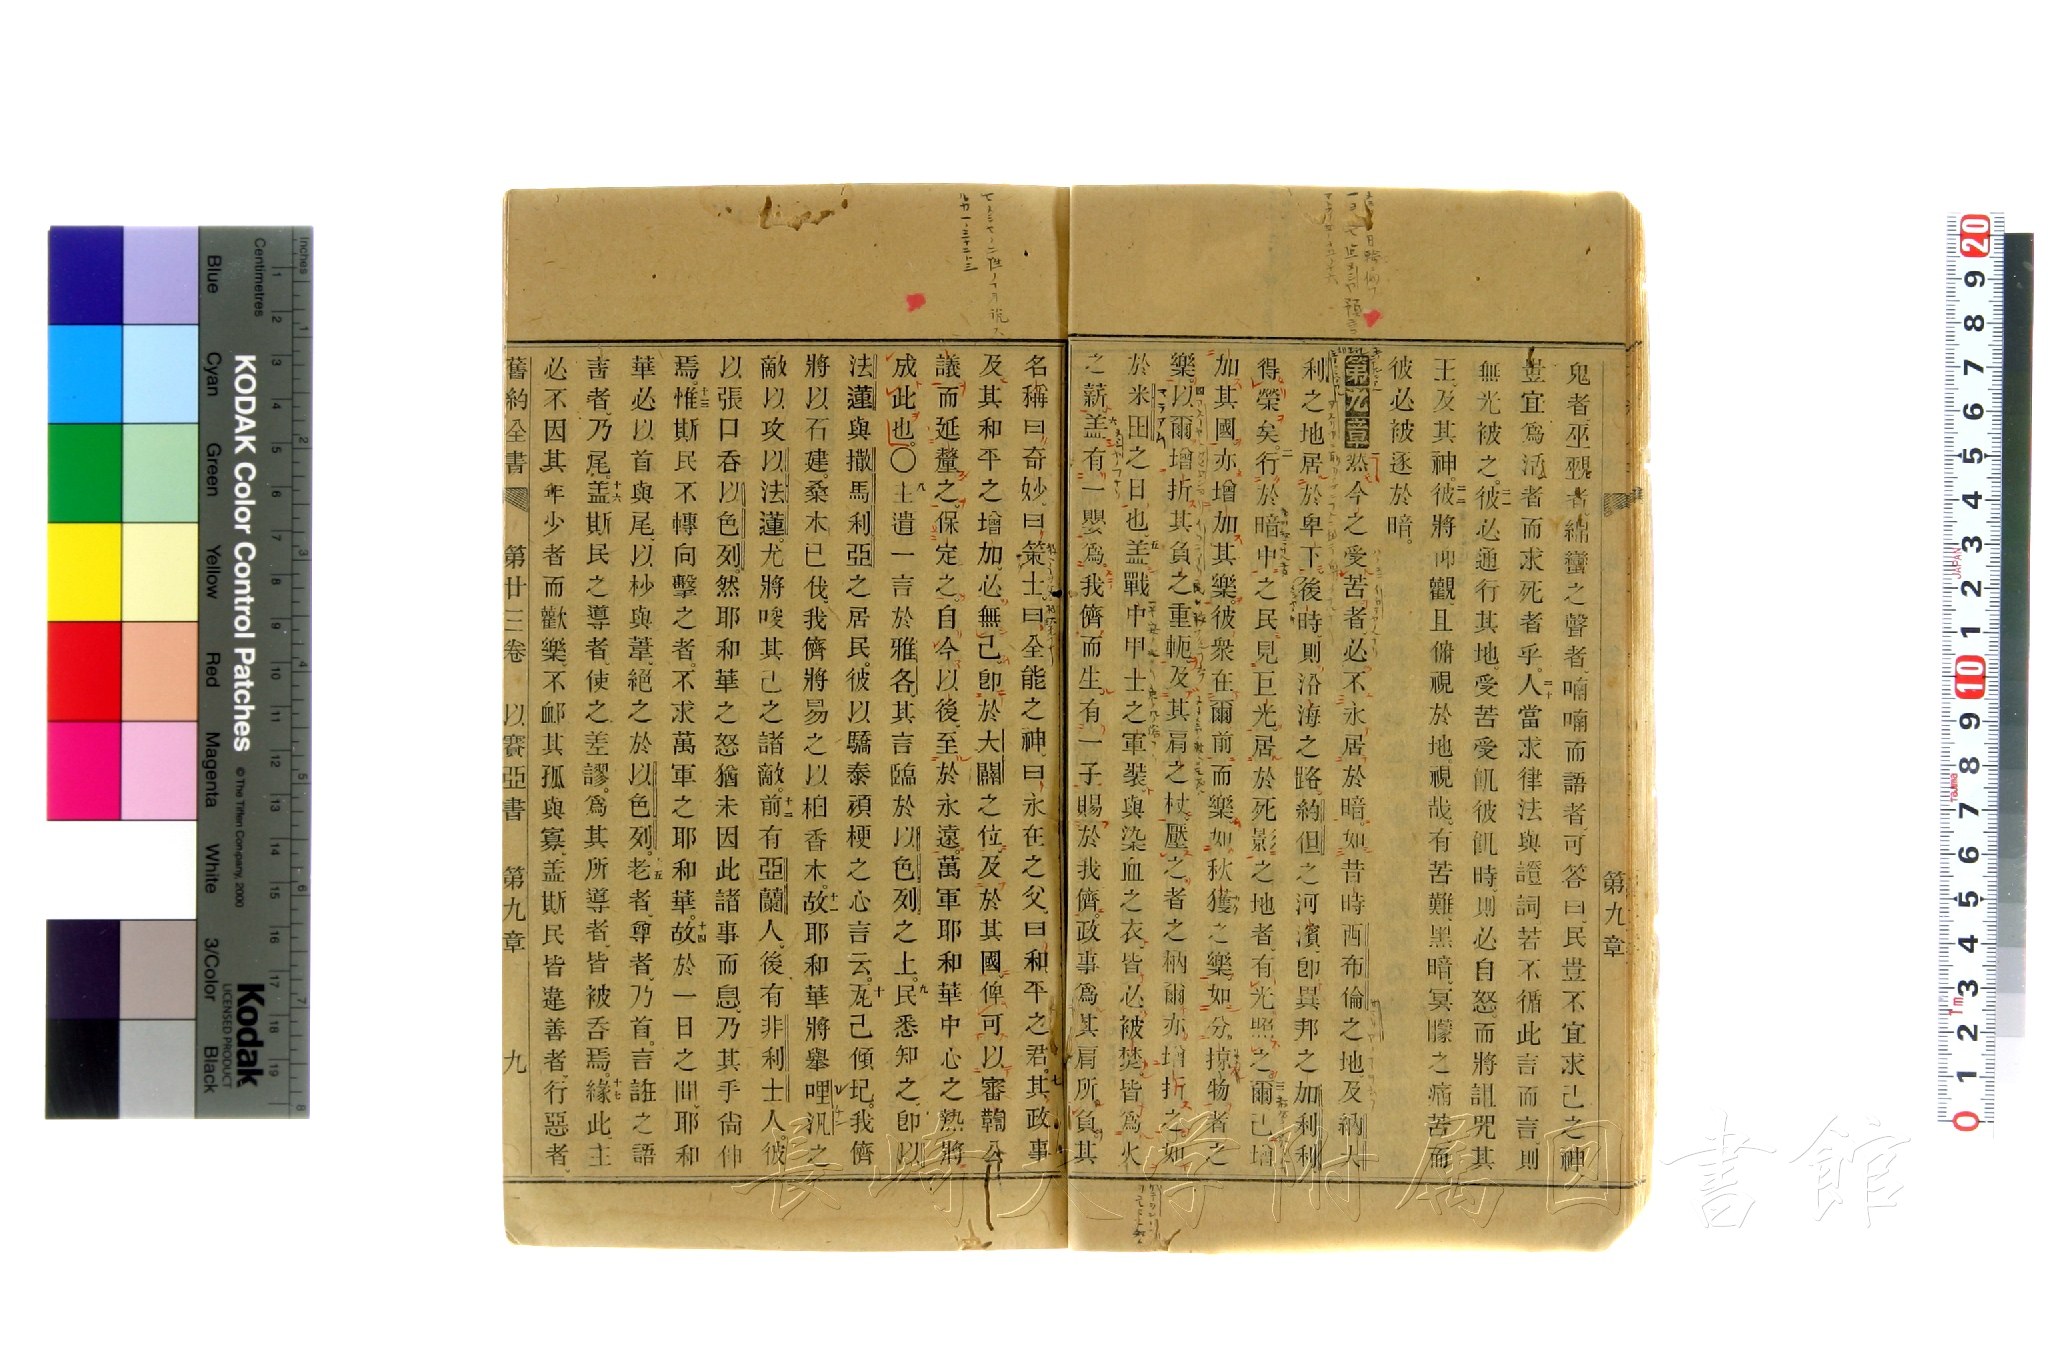 鬼者巫覡者綿蠻之聲者喃喃而語者可答曰民豈不宜求己之神
豈宜爲活者而求死者乎二十人當求律法與證詞若不循此言而言則
無光被之二一彼必通行其地受苦受飢彼飢時則必自怒而將詛咒其
王及其神二二彼將仰觀且俯視於地視哉有苦難黑暗冥朦之痛苦而
彼必被逐於暗
第九章 然今之受苦者必不永居於暗如昔時西布倫之地及納大
利之地居於卑下後時則沿海之路約但之河濱卽異邦之加利利
得榮矣二行於暗中之民見巨光居於死影之地者有光照之三爾己增
加其國亦增加其樂彼衆在爾前而樂如秋獲之樂如分掠物者之
樂四以爾增折其負之重軛及其肩之杖壓之者之柄爾亦增折之如
於米田之日也五盖戰中甲士之軍裝與染血之衣皆必被焚皆爲火
之薪六盖有一嬰爲我儕而生有一子賜於我儕政事爲其肩所負其
名稱曰奇妙曰策士曰全能之神曰永在之父曰和平之君七其政事
及其和平之增加必無己卽於大闢之位及於其國俾可以審鞫公
議而延釐之保定之自今以後至於永遠萬軍耶和華中心之熱將
成此也〇八主遣一言於雅各其言臨於以色列之上九民悉知之卽以
法蓮與撒馬利亞之居民彼以驕泰頑梗之心言云十瓦己傾圮我儕
將以石建桑木已伐我儕將易之以柏香木十一故耶和華將擧哩汛之
敵以攻以法蓮尤將唆其己之諸敵十二前有亞蘭人後有非利士人彼
以張口吞以色列然耶和華之怒猶未因此諸事而息乃其手尙伸
焉十三惟斯民不轉向擊之者不求萬軍之耶和華十四故於一日之間耶和
華必以首與尾以杪與葦絕之於以色列十五老者尊者乃首言誑之語
者乃尾十六盖斯民之導者使之差謬爲其所導者皆被吞焉十七緣此主
必不因其年少者而歡樂不卹其孤與寡盖斯民皆違善者行惡者
舊約全書 第廿三卷 以賽亞書 第九章 九
第九章
長崎大学附属図書館
KODAK Color Control Patches
Blue Cyan Green Yellow Red Magenta White 3/Color Black
Inches
Centimetres
© The Tiffen Company, 2000
Kodak
LICENSED PRODUCT
JAPAN